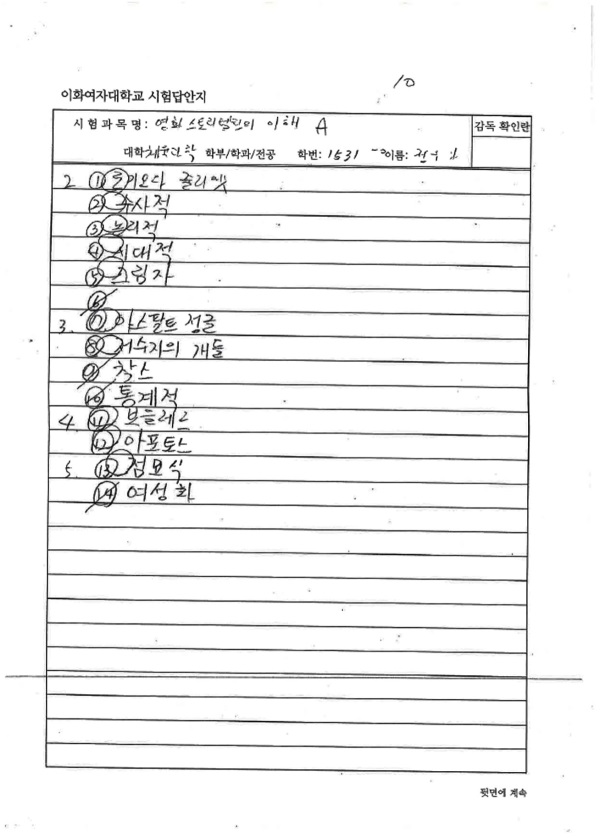 10
이화여자대학교 시험답안지
시험과목명: 영화 스토리텔링의 이해 A
감독 확인란
대학 체육과학 학부/학과/전공 학번: 1531 이름:
2 ① 로미오와 줄리엣
② 수사적
③ 논리적
④ 시대적
⑤ 그림자
⑥
3. ⑦ 아스팔트 정글
⑧ 저수지의 개들
⑨ 착스
⑩ 통계적
4. ⑪ 보들레르
⑫ 아포토스
5. ⑬ 점묘식
⑭ 여성화
뒷면에 계속